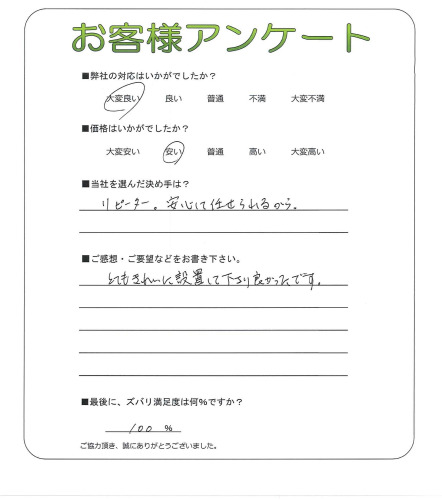 お客様アンケート
■弊社の対応はいかがでしたか?
大変良い 良い 普通 不満 大変不満
■価格はいかがでしたか?
大変安い 安い 普通 高い 大変高い
■当社を選んだ決め手は?
リピーター。安心して任せられるから。
■ご感想・ご要望などをお書き下さい。
とてもきれいに設置して下さり良かったです。
■最後に、ズバリ満足度は何%ですか?
100 %
ご協力頂き、誠にありがとうございました。